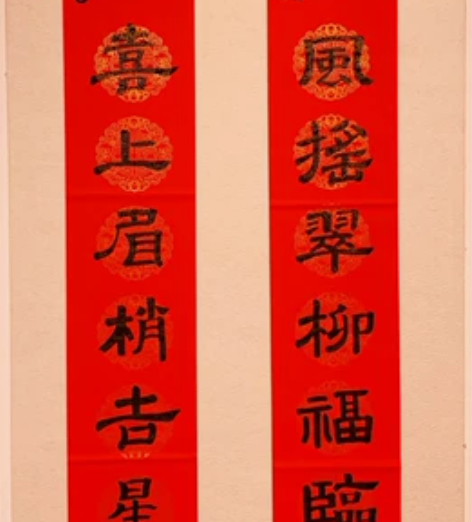 風搖翠柳福臨
喜上眉梢吉星